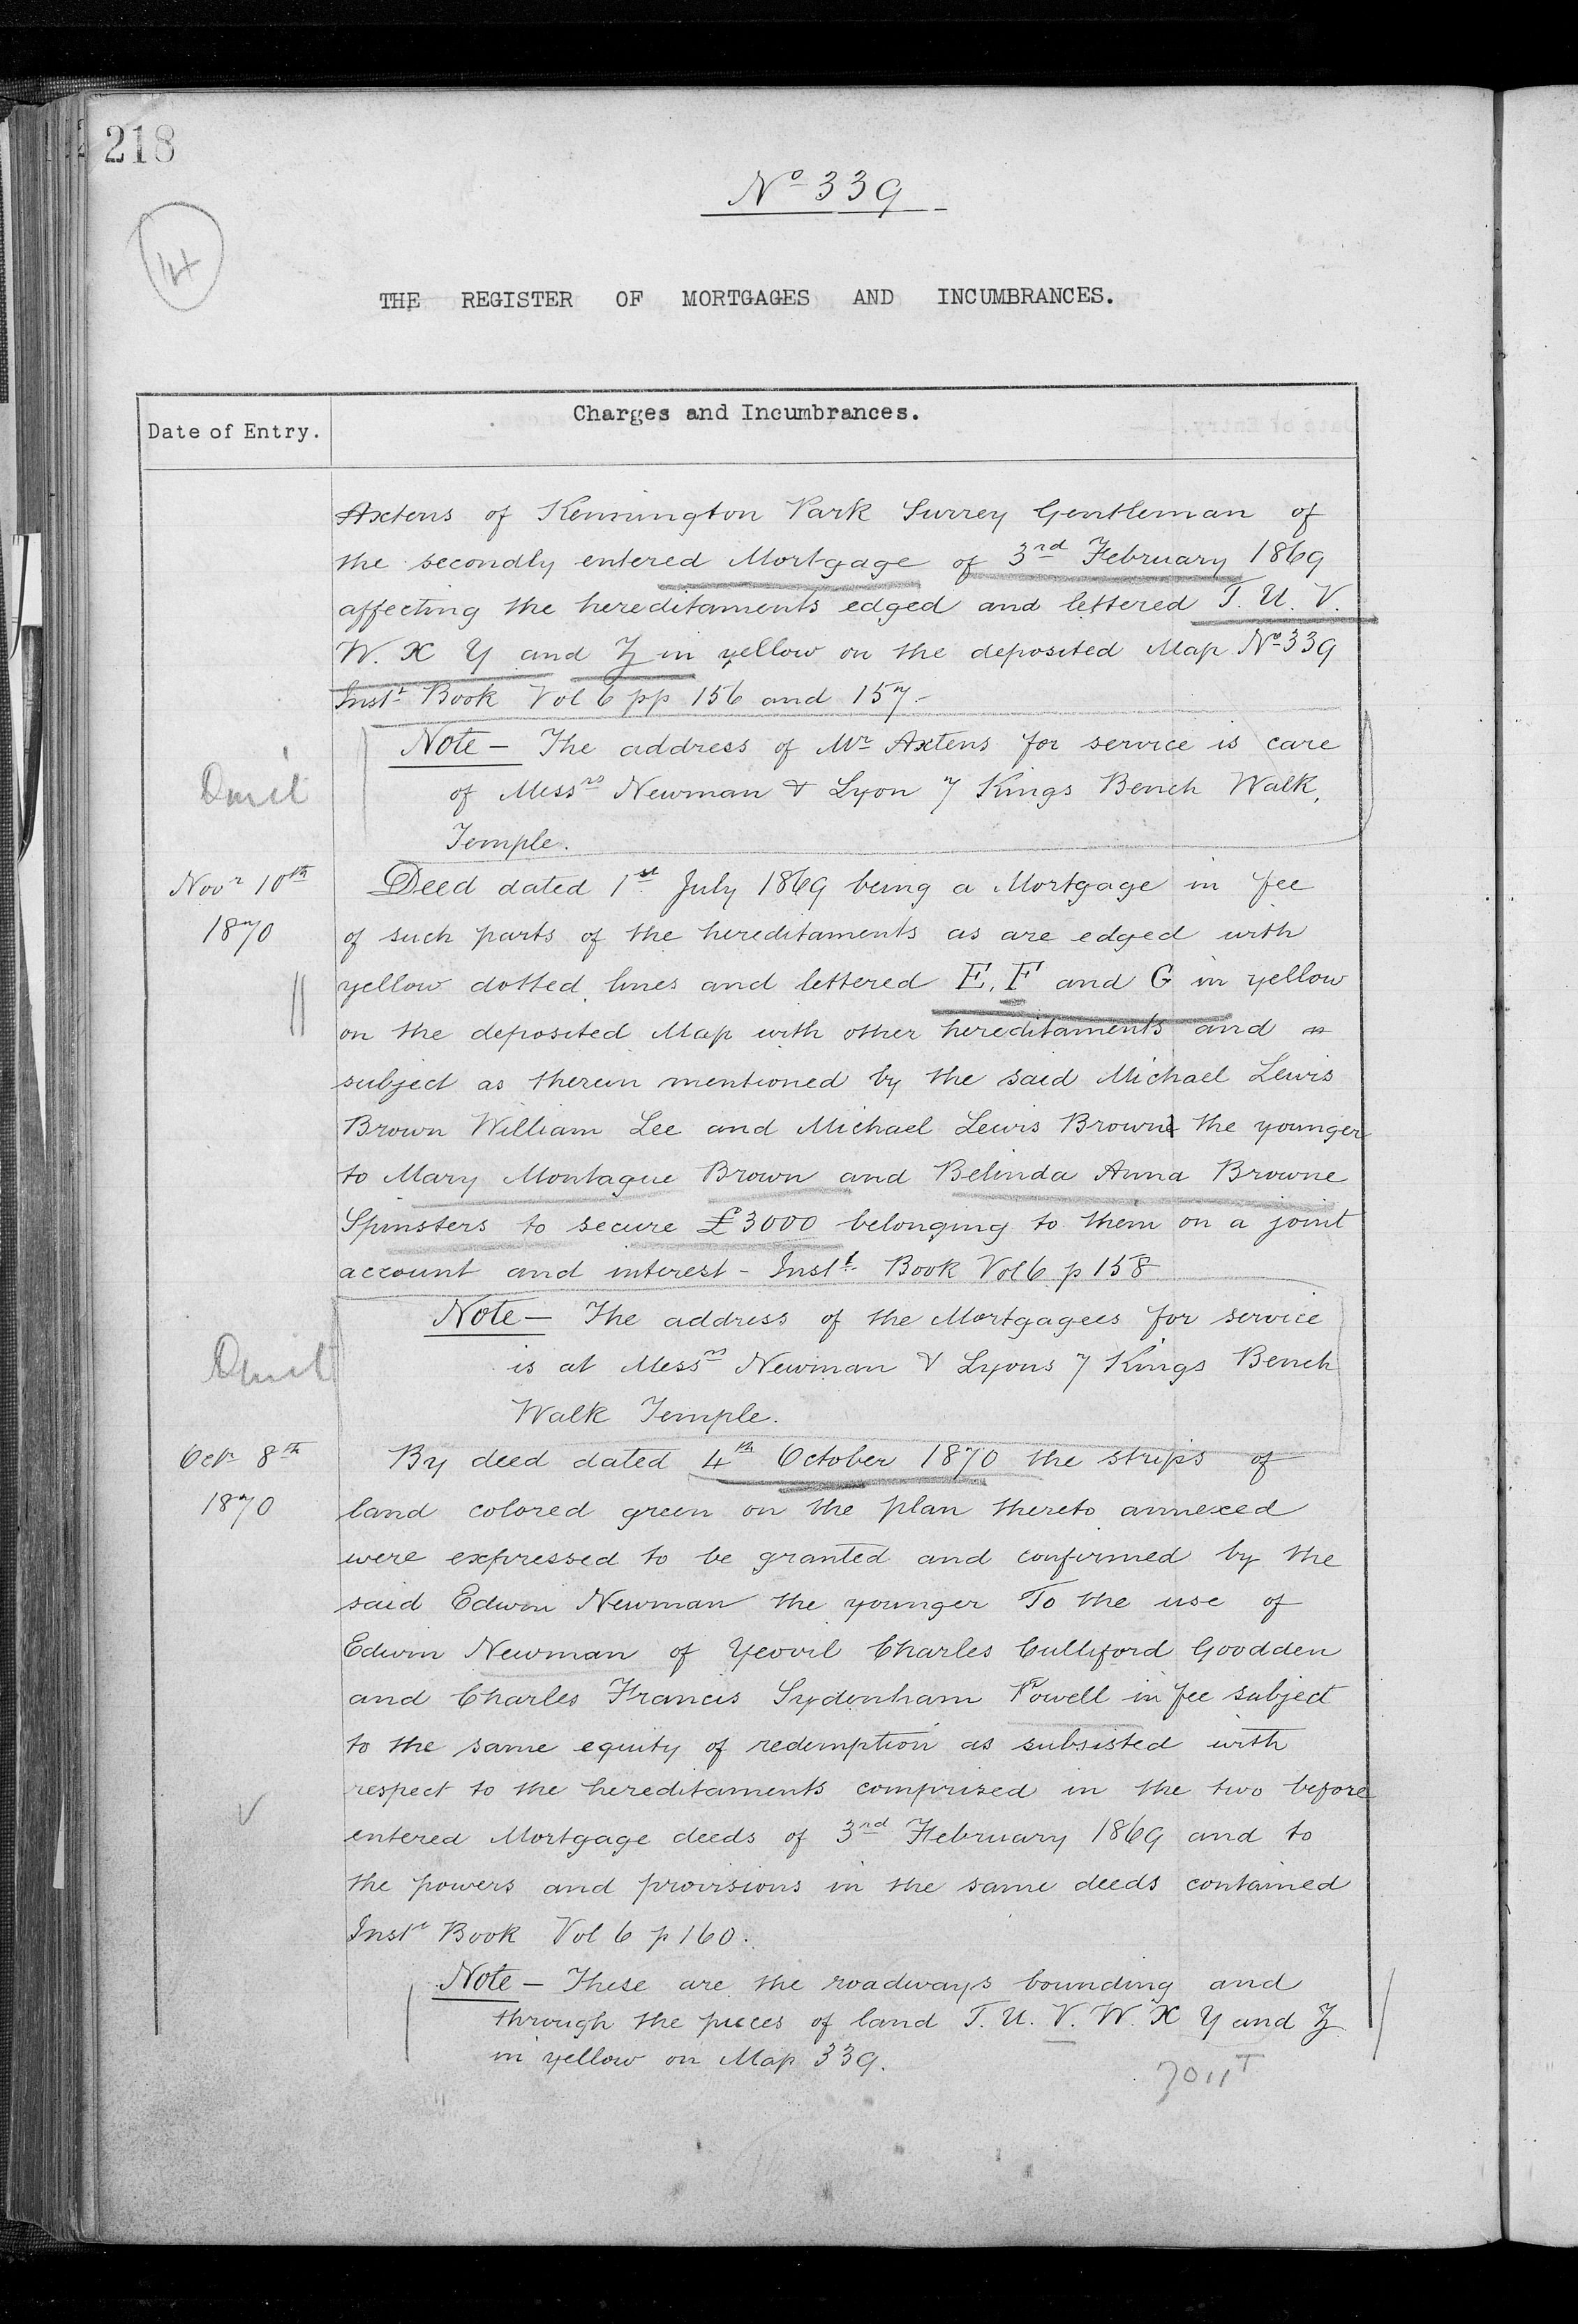 218
No 339
14
THE REGISTER OF MORTGAGES AND INCUMBRANCES.
Date of Entry.
Charges and Incumbrances.
Axtens of Kennington Park Surrey Gentleman of
the secondly entered Mortgage of 3rd February 1869
affecting the hereditaments edged and lettered T. U. V.
W. X Y and Z in yellow on the deposited Map No 339
Inst. Book Vol 6 pp 156 and 157.-
Omit
Note - The address of Mr Axtens for service is care
of Messrs Newman & Lyon 7 Kings Bench Walk,
Temple.
Novr 10th
1870
Deed dated 1st July 1869 being a Mortgage in fee
of such parts of the hereditaments as are edged with
yellow dotted lines and lettered E, F and G in yellow
on the deposited Map with other hereditaments and
subject as therein mentioned by the said Michael Lewis
Brown William Lee and Michael Lewis Brown the younger
to Mary Montague Brown and Belinda Anna Browne
Spinsters to secure £3000 belonging to them on a joint
account and interest - Instt. Book Vol 6 p 158
Omit
Note - The address of the Mortgagees for service
is at Messrs Newman & Lyons 7 Kings Bench
Walk Temple.
Octr 8th
1870
By deed dated 4th October 1870 the strips of
land colored green on the plan thereto annexed
were expressed to be granted and confirmed by the
said Edwin Newman the younger To the use of
Edwin Newman of Yeovil Charles Culliford Goodden
and Charles Francis Sydenham Powell in fee subject
to the same equity of redemption as subsisted with
respect to the hereditaments comprised in the two before
entered Mortgage deeds of 3rd February 1869 and to
the powers and provisions in the same deeds contained
Instr Book Vol 6 p 160.
Note - These are the roadways bounding and
through the pieces of land T. U. V. W. X Y and Z
in yellow on Map 339.